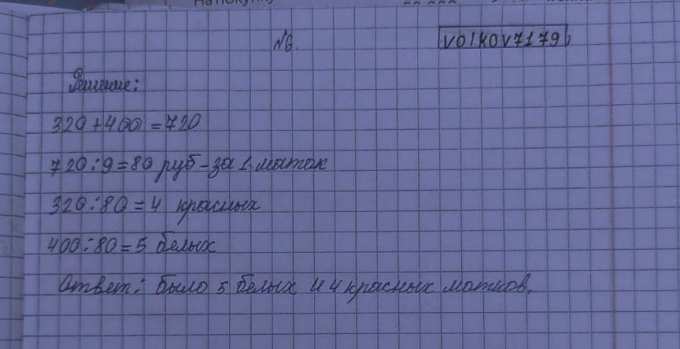 №6. volkov7179
Решение:
320+400=720
720:9=80 руб-за 1 маток
320:80=4 красных
400:80=5 белых
Ответ: было 5 белых и 4 красных мотков.